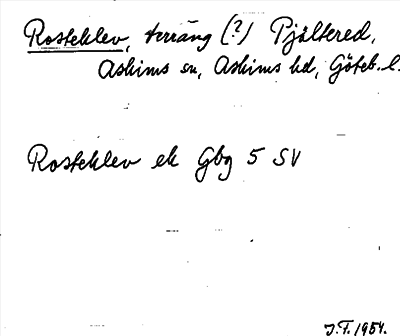 Rosteklev, terräng (?) Pjältered,
Askims sn, Askims hd, Göteb. l.
Rosteklev ek Gbg 5 SV
J.F. 1954.